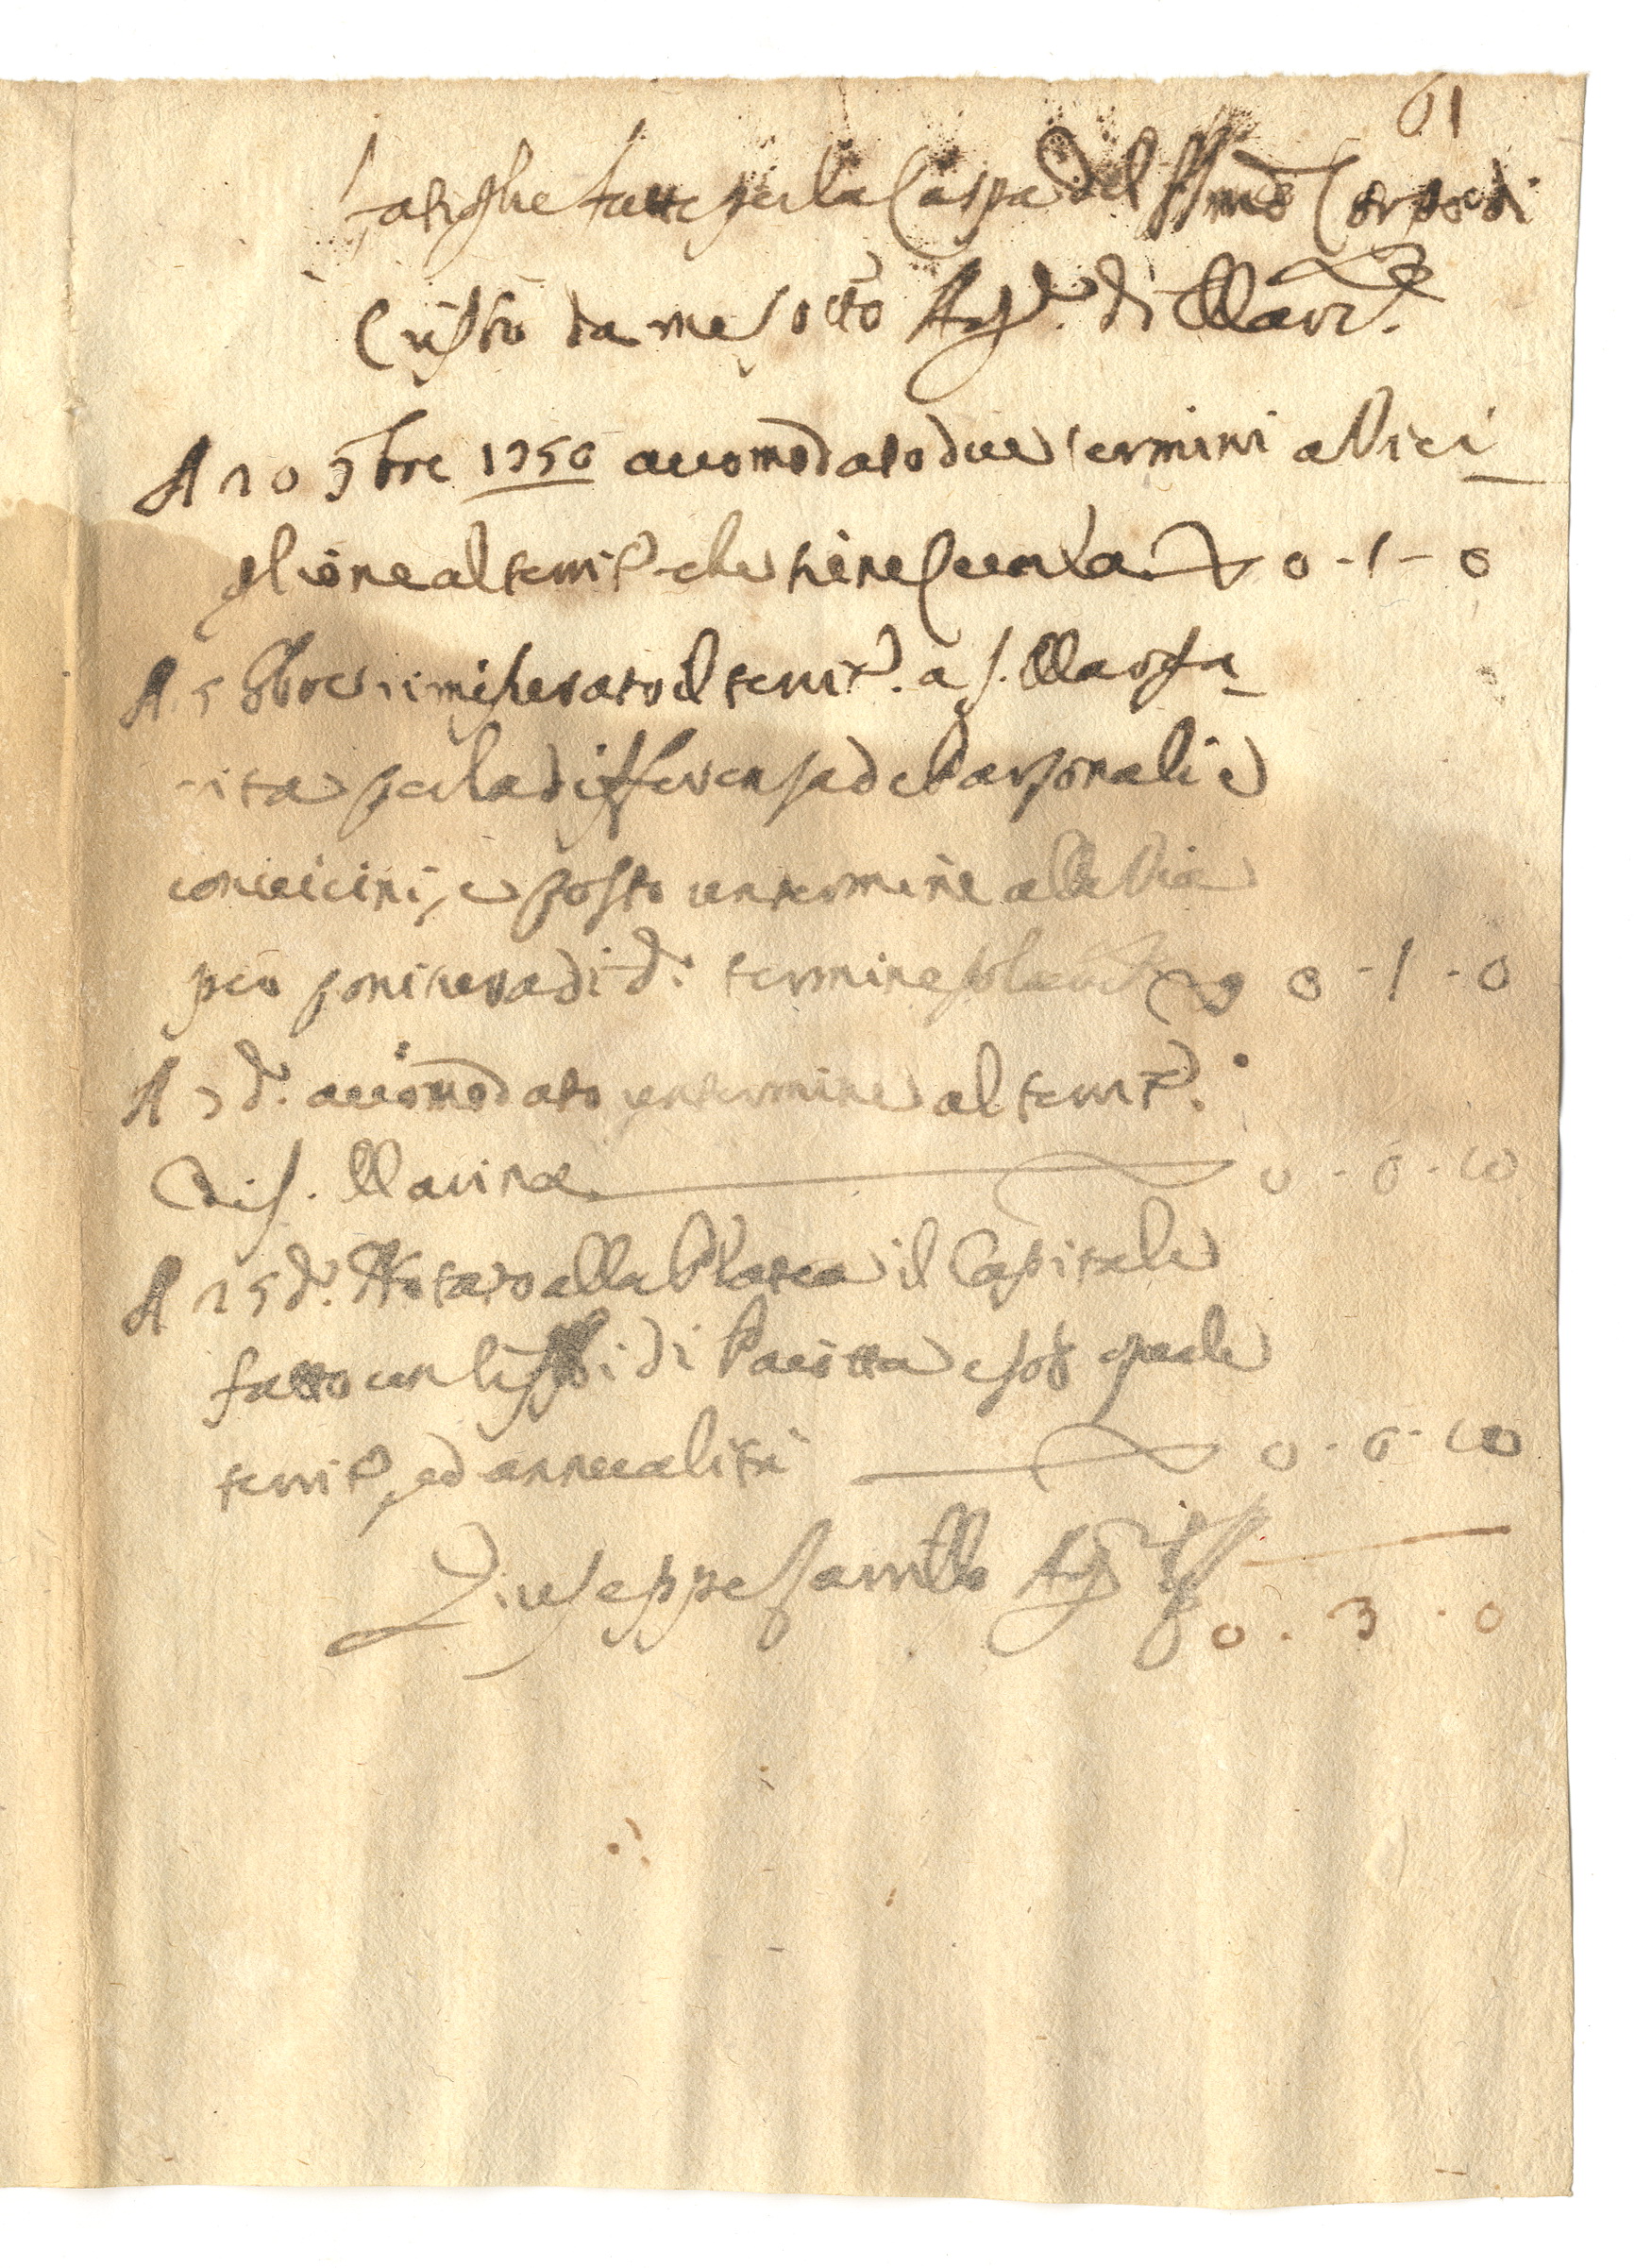 61
Fatighe fatte per la Cappa del SSmo Corpo di
Cristo da me sotto Agr.e di
A 10 9bre 1756 accomodato due termini a Vici_
glione al territ.o che tiene 0-1-0
A 5 8bre rimisurato il territ.o a S. Marga_
rita per la differenza de
convicini, e posto un termine alla Via
per ponitura di d.o termine 0-1-0
A 7 d.o accomodato un termine al territ.o
di S. Marina 0-0-10
A 15 d.o Notato alla Platea il Capitale
fatto con li di sop.a quale
territ.o, ed annualità 0-0-10
Giuseppe Agr.e
0.3.0